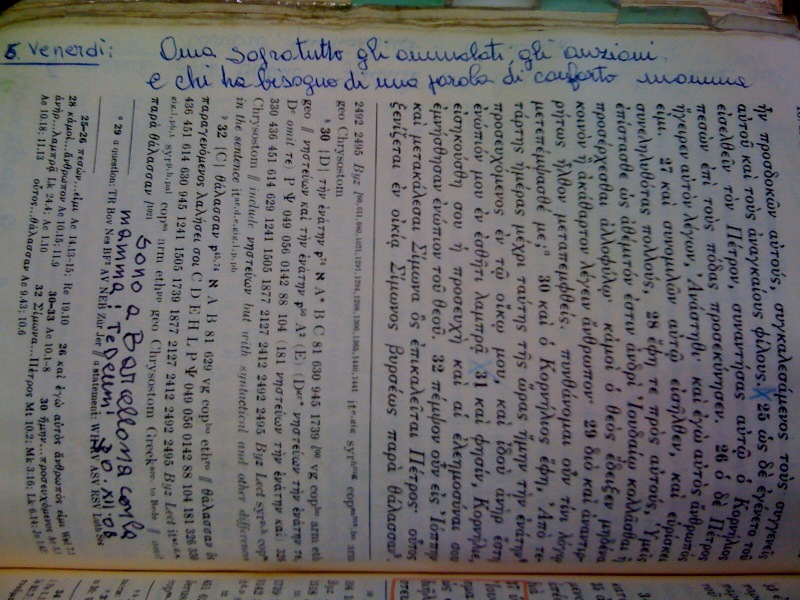 5 Venerdì: Oma sopratutto gli ammalati, gli anziani
e chi ha bisogno di una parola di conforto
ἦν προσδοκῶν αὐτούς, συγκαλεσάμενος τοὺς συγγενεῖς
αὐτοῦ καὶ τοὺς ἀναγκαίους φίλους. 25 ὡς δὲ ἐγένετο τοῦ
εἰσελθεῖν τὸν Πέτρον, συναντήσας αὐτῷ ὁ Κορνήλιος
πεσὼν ἐπὶ τοὺς πόδας προσεκύνησεν. 26 ὁ δὲ Πέτρος
ἤγειρεν αὐτὸν λέγων, Ἀνάστηθι· καὶ ἐγὼ αὐτὸς ἄνθρωπός
εἰμι. 27 καὶ συνομιλῶν αὐτῷ εἰσῆλθεν, καὶ εὑρίσκει
συνεληλυθότας πολλούς, 28 ἔφη τε πρὸς αὐτούς, Ὑμεῖς
ἐπίστασθε ὡς ἀθέμιτόν ἐστιν ἀνδρὶ Ἰουδαίῳ κολλᾶσθαι ἢ
προσέρχεσθαι ἀλλοφύλῳ· κἀμοὶ ὁ θεὸς ἔδειξεν μηδένα
κοινὸν ἢ ἀκάθαρτον λέγειν ἄνθρωπον· 29 διὸ καὶ ἀναντιρ-
ρήτως ἦλθον μεταπεμφθείς. πυνθάνομαι οὖν τίνι λόγῳ
μετεπέμψασθέ με; 30 καὶ ὁ Κορνήλιος ἔφη, Ἀπὸ τε-
τάρτης ἡμέρας μέχρι ταύτης τῆς ὥρας ἤμην τὴν ἐνάτην
προσευχόμενος ἐν τῷ οἴκῳ μου, καὶ ἰδοὺ ἀνὴρ ἔστη
ἐνώπιόν μου ἐν ἐσθῆτι λαμπρᾷ 31 καὶ φησίν, Κορνήλιε,
εἰσηκούσθη σου ἡ προσευχὴ καὶ αἱ ἐλεημοσύναι σου
ἐμνήσθησαν ἐνώπιον τοῦ θεοῦ. 32 πέμψον οὖν εἰς Ἰόππην
καὶ μετακάλεσαι Σίμωνα ὃς ἐπικαλεῖται Πέτρος· οὗτος
ξενίζεται ἐν οἰκίᾳ Σίμωνος βυρσέως παρὰ θάλασσαν.
2492 2495 Byz
geo Chrysostom
30 {D} τὴν ἐνάτην p⁷⁴ א A* B C 81 630 945 1739 vg cop arm eth
geo // νηστείων καὶ τὴν ἐνάτην p⁵⁰ A² (E)
D omit τε) P Ψ 049 056 0142 88 104 (181 νηστείων τὴν ἐνάτην καὶ) 326
330 436 451 614 629 1241 1505 1877 2127 2412 2492 2495 Byz Lect
Chrysostom // include νηστείων but with syntactical and other differences
in the sentence
32 {C} θάλασσαν p⁴⁵,⁷⁴ א A B 81 629 vg cop eth // θάλασσαν ὃς
παραγενόμενος λαλήσει σοι C D E H L P Ψ 049 056 0142 88 104 181 326 330
436 451 614 630 945 1241 1505 1739 1877 2127 2412 2492 2495 Byz Lect
arm geo Chrysostom
παρὰ θάλασσαν
29 a question: TR Bov Nes BF² AV NEB Zür // a statement: WH RV ASV RSV Luth Seg
sono a Barcellona con la
mamma; Tedeum! 30.XII.08
25–26 πεσών...εἰμι Ac 14.13-15; Re 19.10 26 καὶ ἐγὼ αὐτὸς ἄνθρωπός εἰμι
28 κἀμοὶ...ἄνθρωπον Ac 10.15; 11.9 30–33 Ac 10.1-8 30 ἤμην...προσευχόμενος
ἀνὴρ...λαμπρᾷ Lk 24.4; Ac 1.10 32 Σίμωνα...Πέτρος Mt 10.2; Mk 3.16; Lk 6.14;
Ac 10.18; 11.13 οὗτος...θάλασσαν Ac 9.43; 10.6